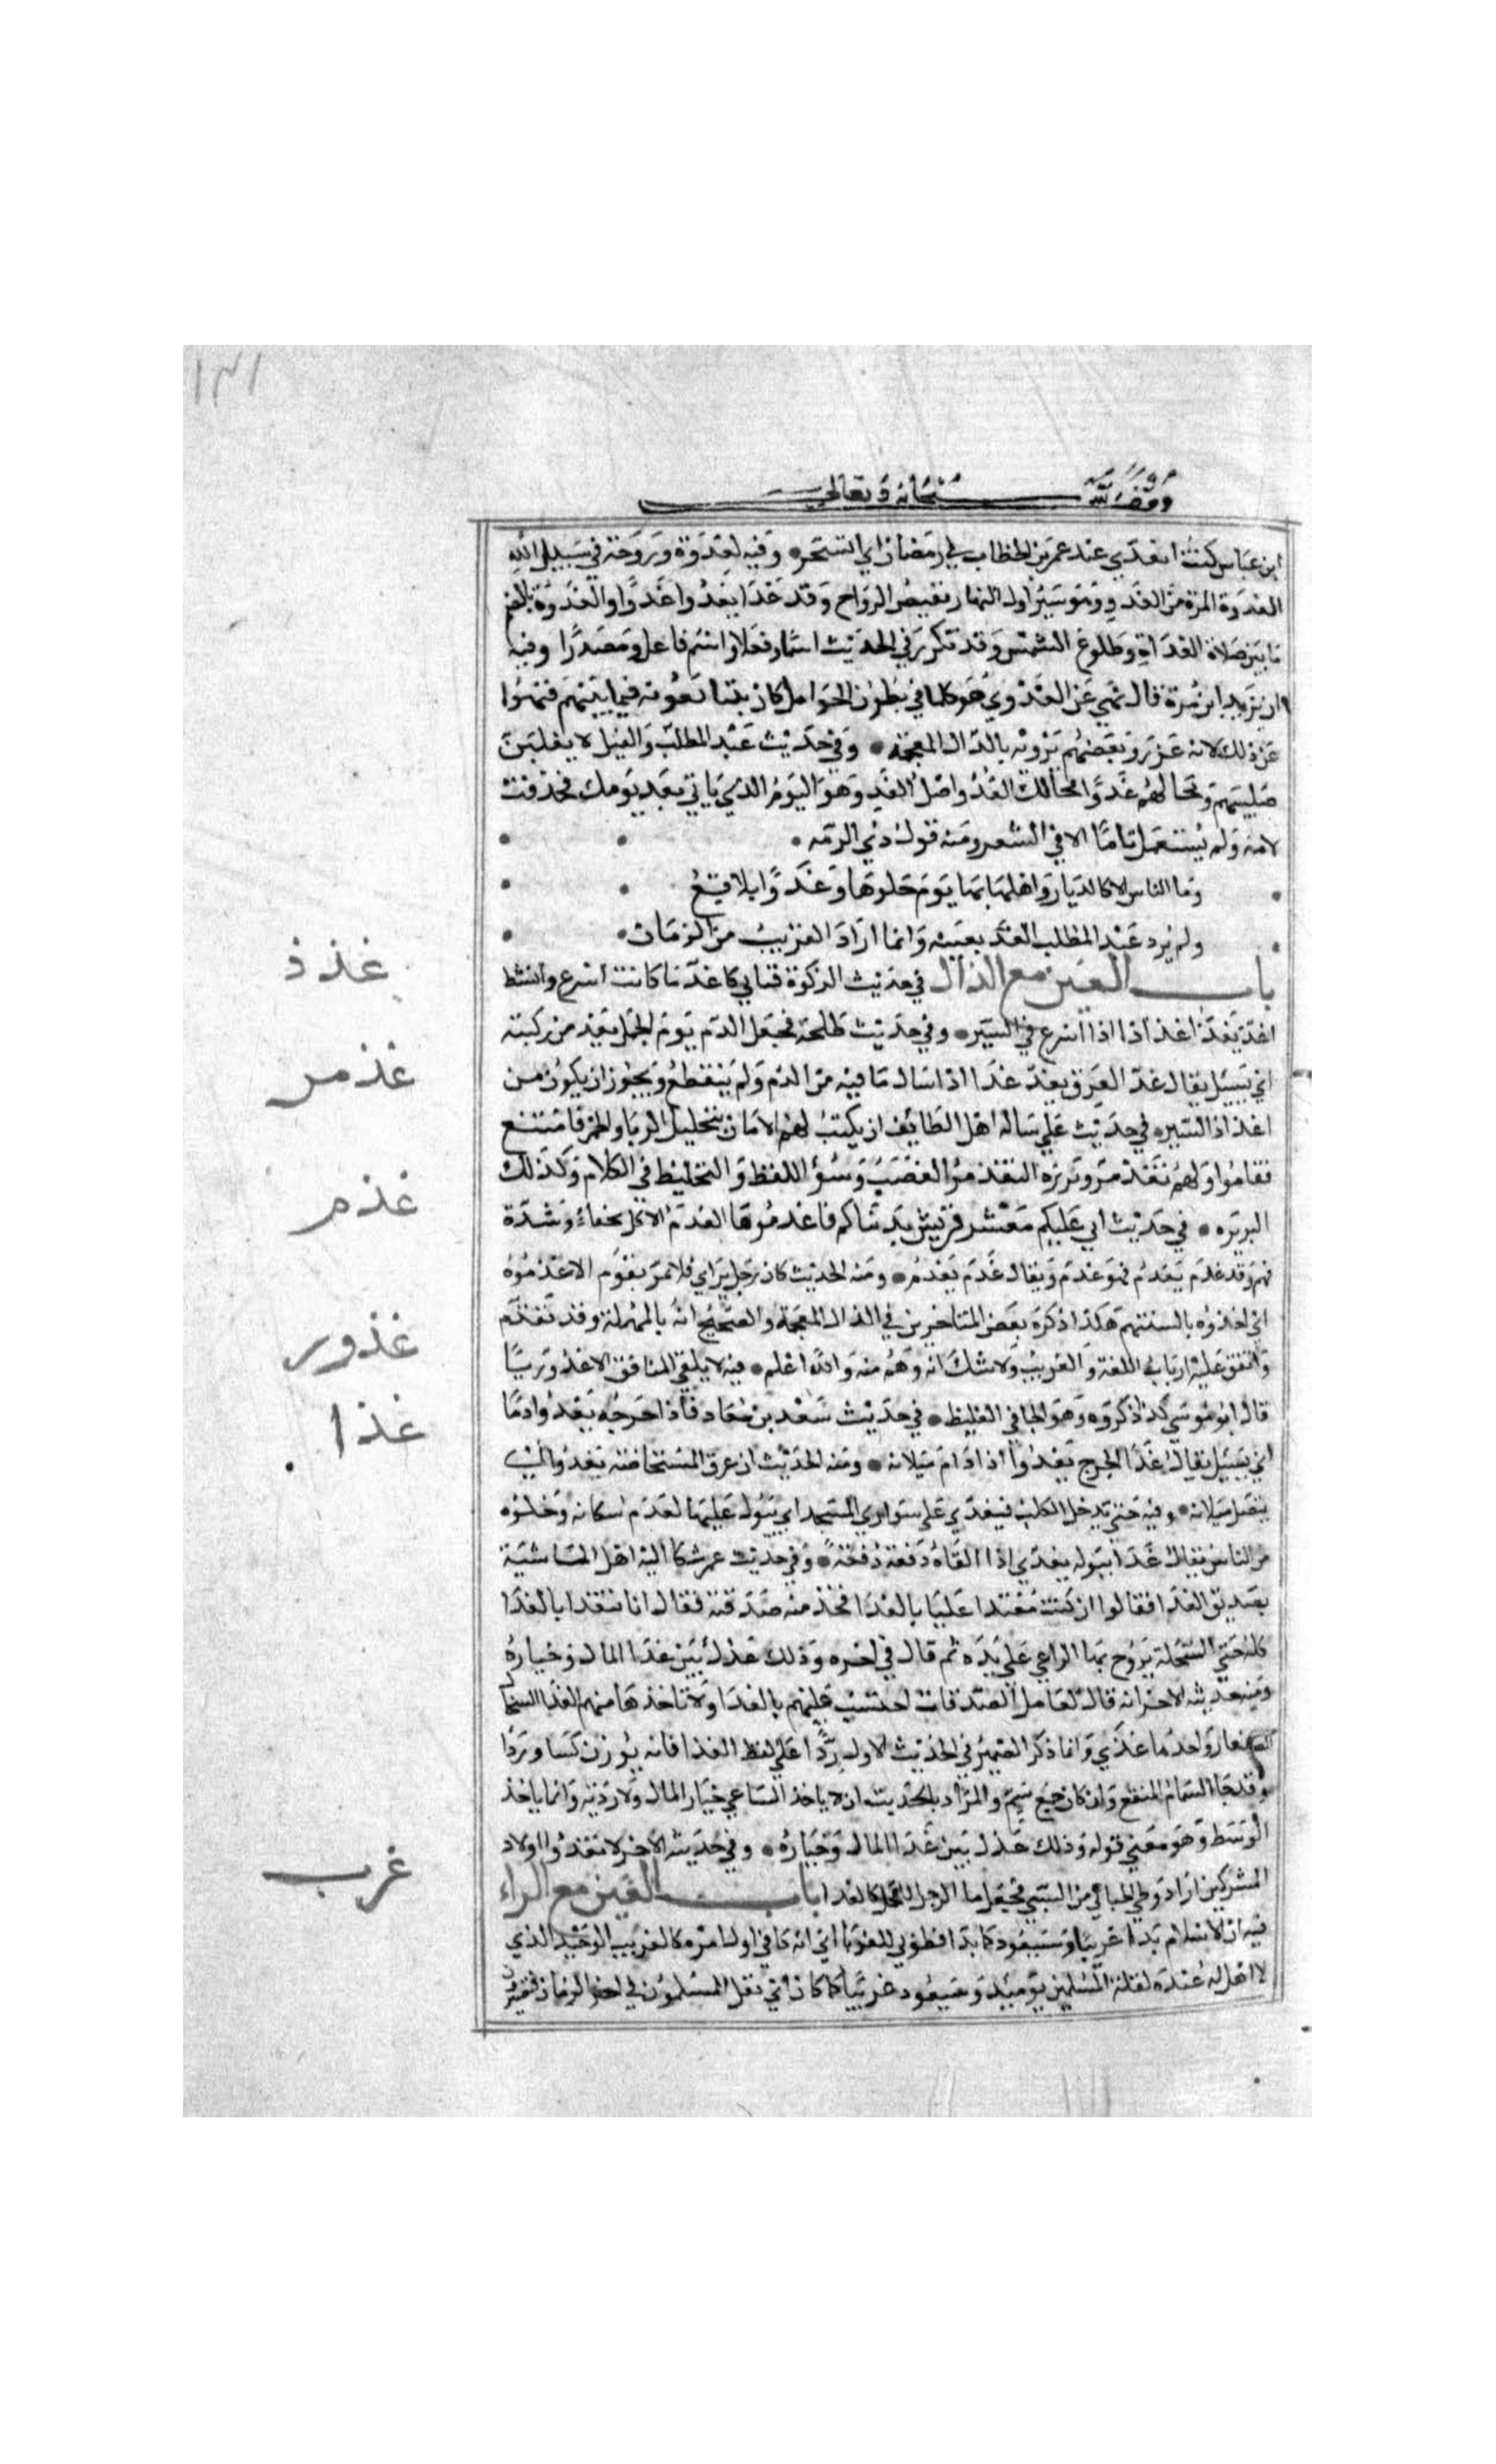 ١٣١
وقف لله سبحانه وتعالى
ابن عباس كنت اتغدى عند عمر بن الخطاب في رمضان اي السحر وفيه لغدوة وروحة في سبيل الله
الغدوة المرة من الغدو وهو سير اول النهار نقيض الرواح وقد غدا يغدوا غدوا والغدوة بالضم
ما بين صلاة الغداة وطلوع الشمس وقد تكرر في الحديث اسما وفعلا واسم فاعل ومصدرا وفيه
ان يزيد ابن مرة قال نهي عن الغدوي هو كلما في بطون الحوامل كانوا يتبايعونه فيما بينهم فنهوا
عن ذلك لانه غرر وبعضهم يرويه بالذال المعجمة وفي حديث عبد المطلب والفيل لا يغلبن
صليبهم ومحالهم غدوا محالك الغد واصل الغد وهو اليوم الذي ياتي بعد يومك فحذفت
لامه ولم يستعمل تاما الا في الشعر ومنه قول ذي الرمه
وما الناس الا كالديار واهلها بها يوم حلوها وغدوا بلاقع
ولم يرد عبد المطلب الغد بعينه وانما اراد القريب من الزمان
باب الغين مع الذال في حديث الزكوة فتاتي كاغذ ما كانت اسرع وانشط
اغذ يغذ اغذاذا اذا اسرع في السير وفي حديث طلحة فجعل الدم يوم الجمل يغذ من ركبته
اي يسيل يقال غذ العرق يغذ غذا اذا سال ما فيه من الدم ولم ينقطع ويجوز ان يكون من
اغذاذ السير في حديث علي ساله اهل الطايف ان يكتب لهم الامان بتحليل الربا والخمر فامتنع
فقاموا ولهم تغذمر وبربره التغذمر الغضب وسؤ اللفظ والتخليط في الكلام وكذلك
البربره في حديث ابي عليكم معشر قريش بدنياكم فاغذموها الغذم الاكل بجفاء وشدة
نهم وقد غذم يغذم فهو غذم ويقال غذم يغذم ومنه الحديث كان رجل يراي فلا يمر بقوم الا غذموه
اي اخذوه بالسنتهم هكذا ذكره بعض المتاخرين في الذال المعجمة والصحيح انه بالمهملة وقد تقدم
واتفق عليه ارباب اللغة والغريب ولا شك انه وهم منه والله اعلم فيه لا يلقى المنافق الا غذوريا
قال ابو موسى كذا ذكروه وهو الجافي الغليظ في حديث سعد بن معاد فاذا جرحه يغذوا دما
اي يسيل يقال غذا الجرح يغذوا اذا دام سيلانه ومنه الحديث ان عرق المستحاضه يغذوا اي
يتصل سيلانه وفيه حتى يدخل الكلب فيغذي على سواري المسجد اي يبول عليها لعدم سكانه وخلوه
من الناس يقال غذا ببوله يغذي اذا القاه دفعة دفعة وفي حديث عمر شكا اليه اهل الماشية
تصديق الغذا فقالوا ان كنت معتدا علينا بالغذا فخذ منه صدقته فقال انا نعتد بالغذا
كله حتى السخلة يروح بها الراعي على يده ثم قال في اخره وذلك عدل بين غذا المال وخياره
ومنه حديثه الاخر انه قال لعامل الصدقات احتسب عليهم بالغذا ولا تاخذها منهم الغذا السخال
الصغار واحدها غذي وانما ذكر الضمير في الحديث الاول ردا على لفظ الغذا فانه بوزن كسا وردا
وقد جا السمام المنقع وان كان جمع سم والمراد بالحديث ان لا ياخذ الساعي خيار المال ولا رديه وانما ياخذ
الوسط وهو معنى قوله وذلك عدل بين غذا المال وخياره وفي حديثه الاخر لا تغذوا اولاد
المشركين اراد وطي الحبالى من السبي فجعل ما الرجل للحمل كالغذا باب الغين مع الراء
فيه ان الاسلام بدا غريبا وسيعود كما بدا فطوبى للغربا اي انه كان في اول امره كالغريب الوحيد الذي
لا اهل له عنده لقلة المسلمين يوميذ وسيعود غريبا كما كان اي تقل المسلمون في اخر الزمان فيصيرون
غذذ
غذمر
غذم
غذور
غذا
غرب